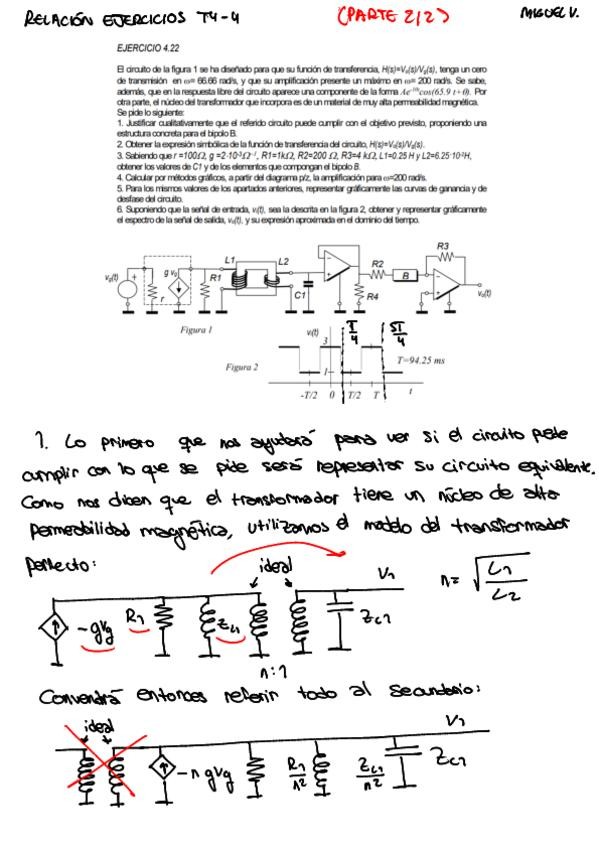 RELACIÓN EJERCICIOS T4-4 (PARTE 2/2) MIGUEL V.
EJERCICIO 4.22
El circuito de la figura 1 se ha diseñado para que su función de transferencia, H(s)=Vo(s)/Vg(s), tenga un cero
de transmisión en ω= 66.66 rad/s, y que su amplificación presente un máximo en ω= 200 rad/s. Se sabe,
además, que en la respuesta libre del circuito aparece una componente de la forma Ae⁻¹⁰ᵗcos(65.9 t+θ). Por
otra parte, el núcleo del transformador que incorpora es de un material de muy alta permeabilidad magnética.
Se pide lo siguiente:
1. Justificar cualitativamente que el referido circuito puede cumplir con el objetivo previsto, proponiendo una
estructura concreta para el bipolo B.
2. Obtener la expresión simbólica de la función de transferencia del circuito, H(s)=Vo(s)/Vg(s).
3. Sabiendo que r =100Ω, g =2·10⁻³Ω⁻¹, R1=1kΩ, R2=200 Ω, R3=4 kΩ, L1=0.25 H y L2=6.25·10⁻³H,
obtener los valores de C1 y de los elementos que compongan el bipolo B.
4. Calcular por métodos gráficos, a partir del diagrama p/z, la amplificación para ω=200 rad/s.
5. Para los mismos valores de los apartados anteriores, representar gráficamente las curvas de ganancia y de
desfase del circuito.
6. Suponiendo que la señal de entrada, vᵢ(t), sea la descrita en la figura 2, obtener y representar gráficamente
el espectro de la señal de salida, vₒ(t), y su expresión aproximada en el dominio del tiempo.
R3
L1 L2 R2
vg(t) + g vg R1 B
r C1 R4 vo(t)
Figura 1
vᵢ(t) T/4 5T/4
3
Figura 2 1 T=94.25 ms
-T/2 0 T/2 T t
1. Lo primero que nos ayudará para ver si el circuito puede
cumplir con lo que se pide será representar su circuito equivalente.
Como nos dicen que el transformador tiene un núcleo de alta
permeabilidad magnética, utilizamos el modelo del transformador
perfecto:
ideal V1 n= √(L1/L2)
-gvg R1 ZL1 ZC1
n:1
Convendrá entonces referir todo al secundario:
ideal V1
-n gvg R1/n² ZL1/n² ZC1